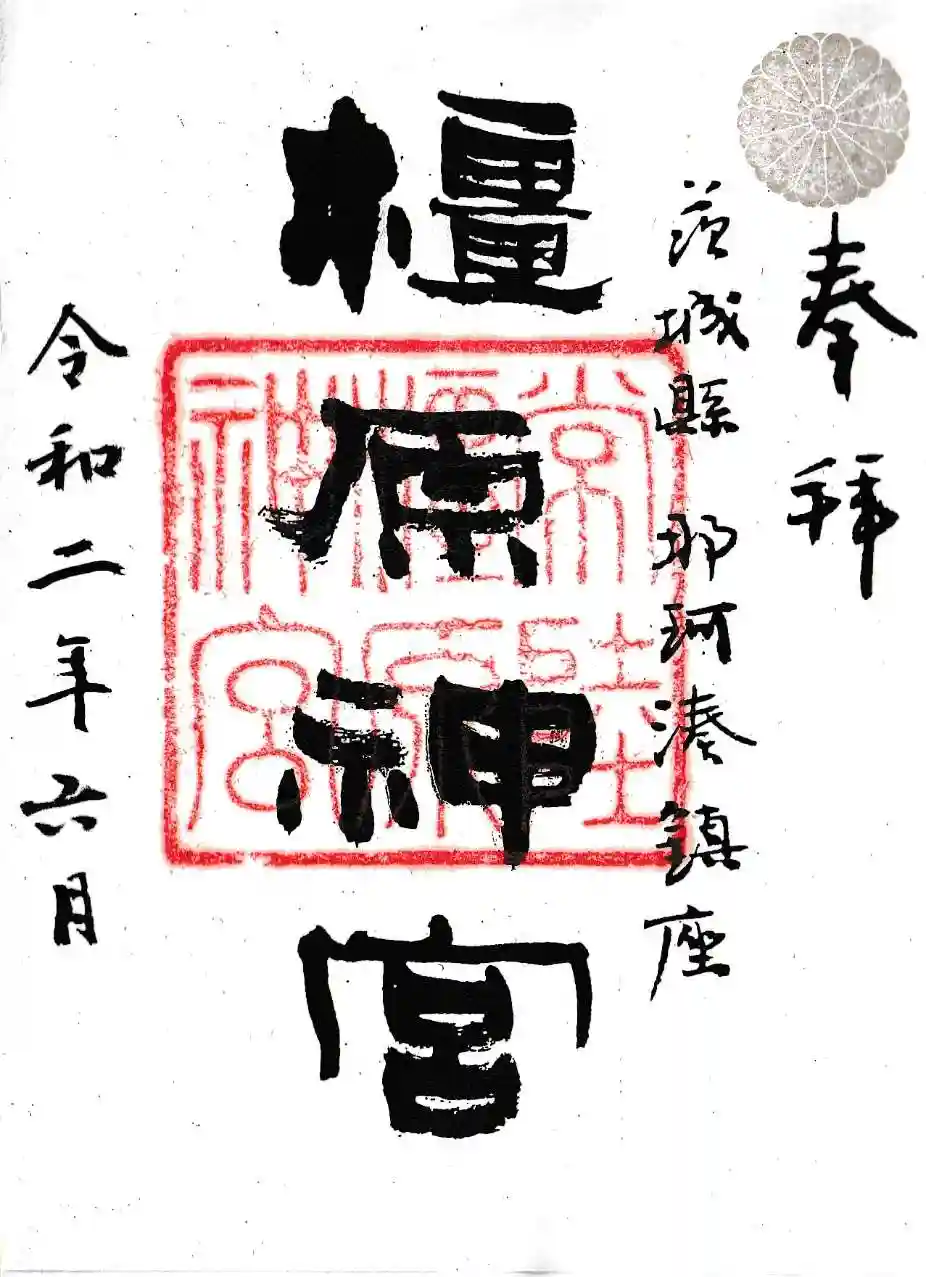 奉拝
茨城縣 那珂湊鎮座
橿原神宮
常陸
橿原
神宮
令和二年六月